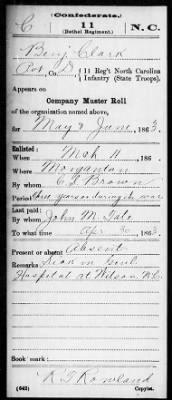 Confederate.
C 11 N.C.
(Bethel Regiment.)
Benj. Clark
Pvt, Co. D, 11 Reg't North Carolina
Infantry (State Troops).
Appears on
Company Muster Roll
of the organization named above,
for May & June, 1863.
Enlisted:
When Mch 11, 186
Where Morganton
By whom C. S. Brown
Period during the war
Last paid:
By whom John M. Tate
To what time Apr 30, 1863.
Present or absent Absent
Remarks: Sick in Genl.
Hospital at Wilson, N.C.
Book mark:
R T Rowland
(642) Copyist.